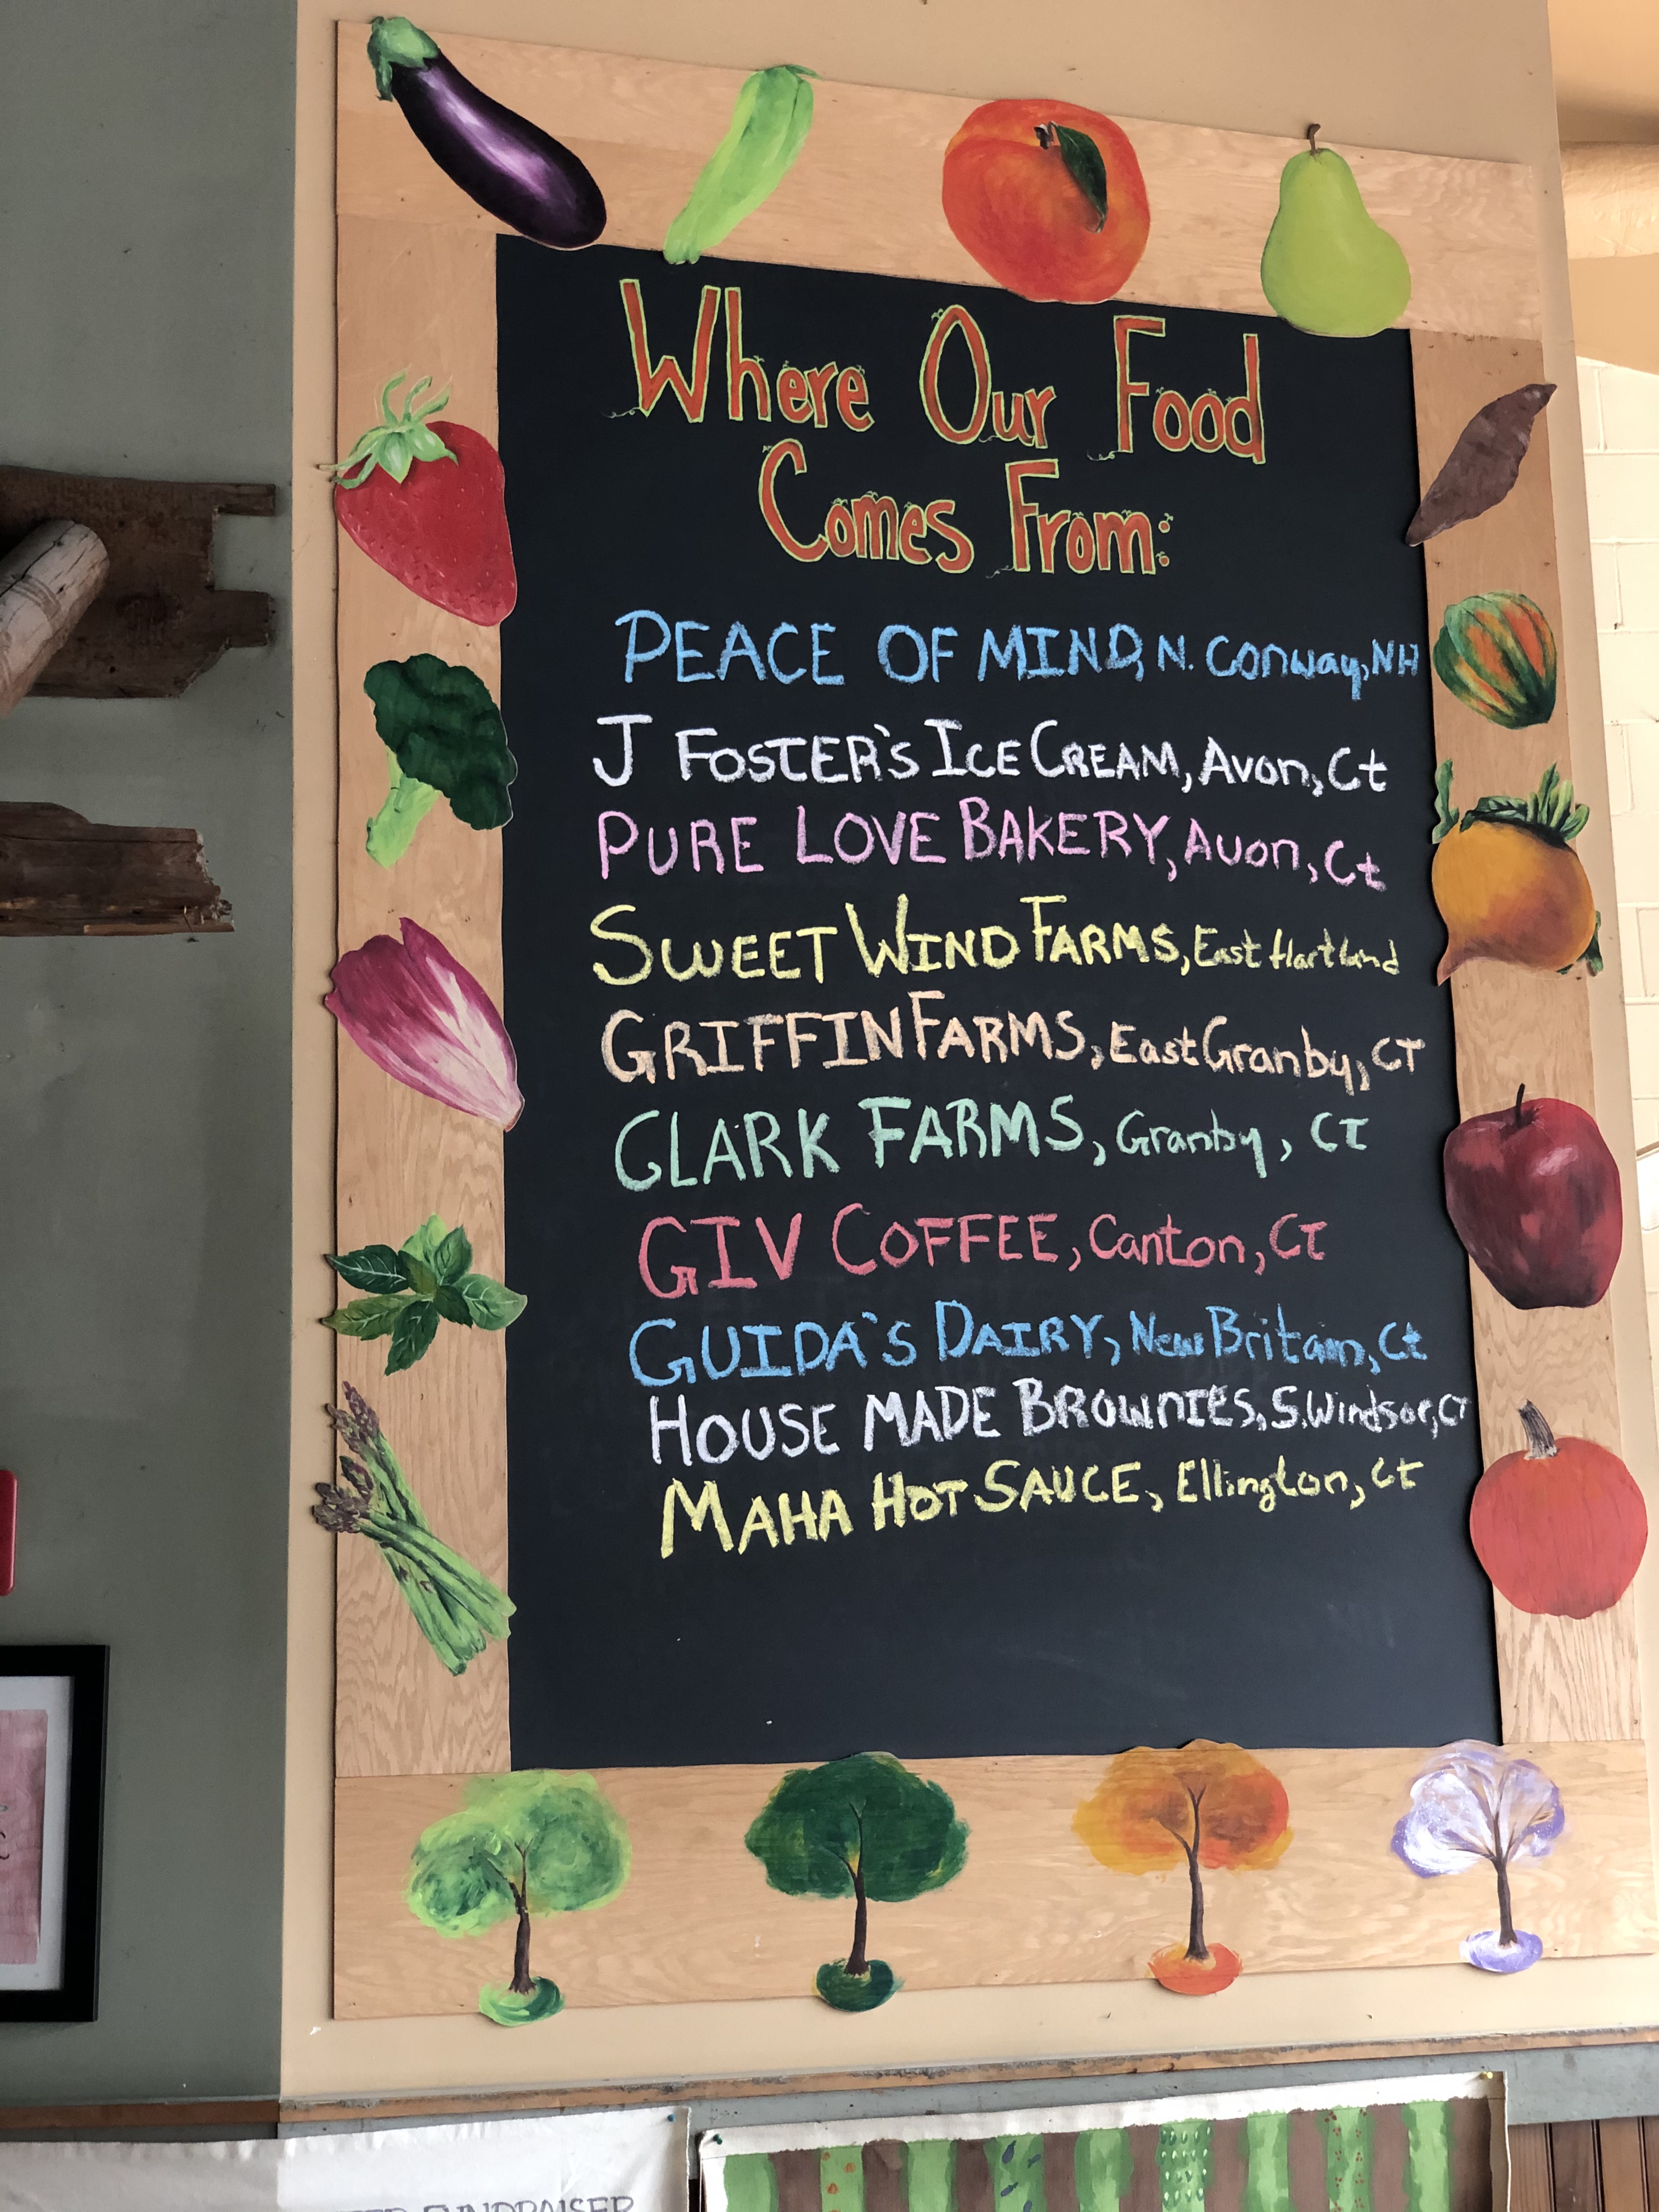 Where Our Food
Comes From:
PEACE OF MIND, N. Conway, NH
J FOSTER'S ICE CREAM, Avon, Ct
PURE LOVE BAKERY, Avon, Ct
SWEET WIND FARMS, East Hartland
GRIFFIN FARMS, East Granby, CT
CLARK FARMS, Granby, CT
GIV COFFEE, Canton, CT
GUIDA'S DAIRY, New Britain, Ct
HOUSE MADE BROWNIES, S. Windsor, CT
MAHA HOT SAUCE, Ellington, Ct
FUNDRAISER